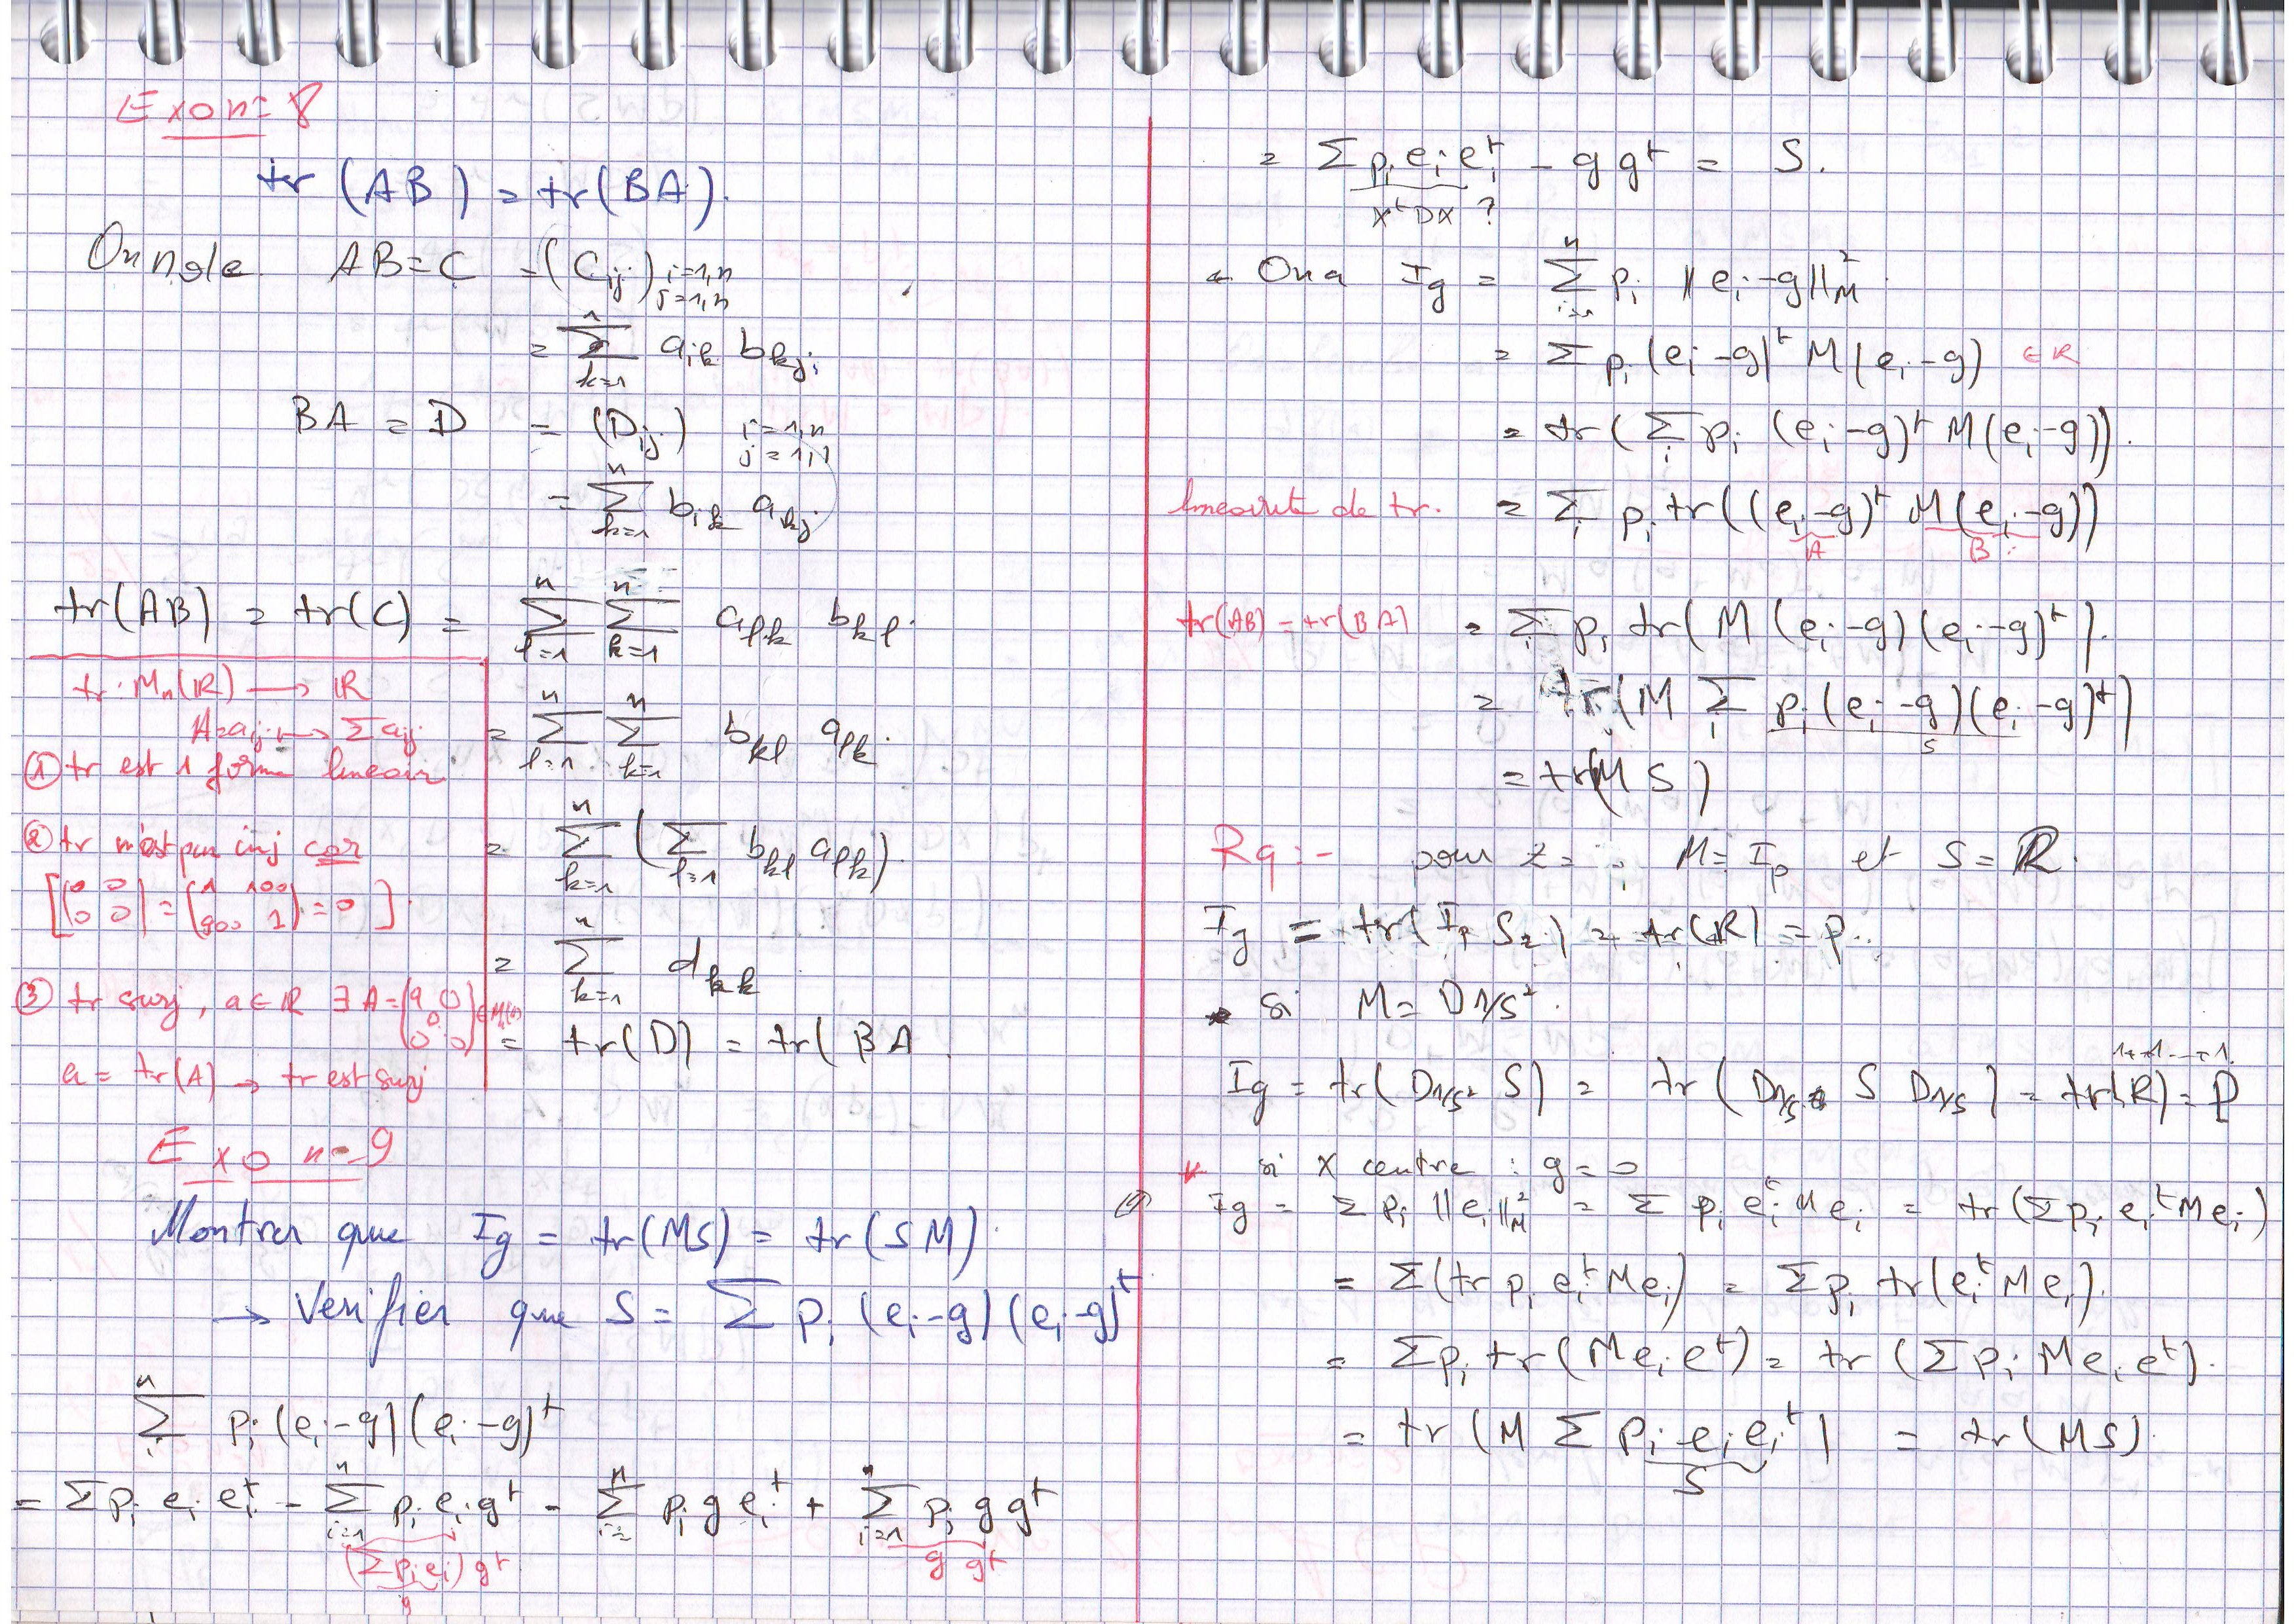 Exo n= 8
tr (AB) = tr(BA).
On note AB = C = (Cij) i=1,n j=1,n
= Σ_{k=1}^{n} aik bkj
BA = D = (Dij) i=1,n j=1,n
= Σ_{k=1}^{n} bik akj
tr(AB) = tr(C) = Σ_{l=1}^{n} Σ_{k=1}^{n} alk bkl.
= Σ_{l=1}^{n} Σ_{k=1}^{n} bkl alk
= Σ_{k=1}^{n} (Σ_{l=1} bkl alk).
= Σ_{k=1}^{n} dkk
= tr(D) = tr(BA
tr : Mn(ℝ) → ℝ
A=aij ↦ Σaij
① tr est 1 forme lineair
② tr n'est pas inj car
[(0 0 0 0) = (1 100 900 1) = 0]
③ tr surj, a ∈ ℝ ∃ A = (a 0 0 0 0) ∈
a = tr(A) → tr est surj
Exo n=9
Montrer que Ig = tr(MS) = tr(SM).
→ Verifier que S = Σ pi (ei-g)(ei-g)^t
Σ_{i}^{n} pi (ei-g)(ei-g)^t
= Σpi ei ei^t - Σ_{i=1}^{n} pi ei g^t - Σ_{i=}^{n} pi g ei^t + Σ_{i=1}^{n} pi g g^t
(Σ pi ei) g^t g g^t
g
= Σ pi ei ei^t - g g^t = S.
X^t D X ?
On a Ig = Σ_{i=1}^{n} pi ||ei-g||²_M
= Σ pi (ei-g)^t M (ei-g) ∈ ℝ
= tr(Σ_i pi (ei-g)^t M(ei-g)).
linearite de tr. = Σ_i pi tr((ei-g)^t M(ei-g))
A B
tr(AB) = tr(BA) = Σ_i pi tr(M (ei-g)(ei-g)^t).
= tr(M Σ_i pi (ei-g)(ei-g)^t)
S
= tr(M S)
Rq :- pour z = : M = Ip et S = R.
Ig = tr(Ip Sz) = tr(R) = p.
si M = D1/s².
1+1...+1.
Ig = tr(D1/s² S) = tr(D1/s S D1/s) = tr(R) = P
si X centre : g = 0
Ig = Σ pi ||ei||²_M = Σ pi ei^t M ei = tr(Σ pi ei^t M ei)
= Σ(tr pi ei^t M ei) = Σ pi tr(ei^t M ei).
= Σ pi tr(M ei e^t) = tr(Σ pi M ei e^t).
= tr(M Σ pi ei ei^t) = tr(MS).
S